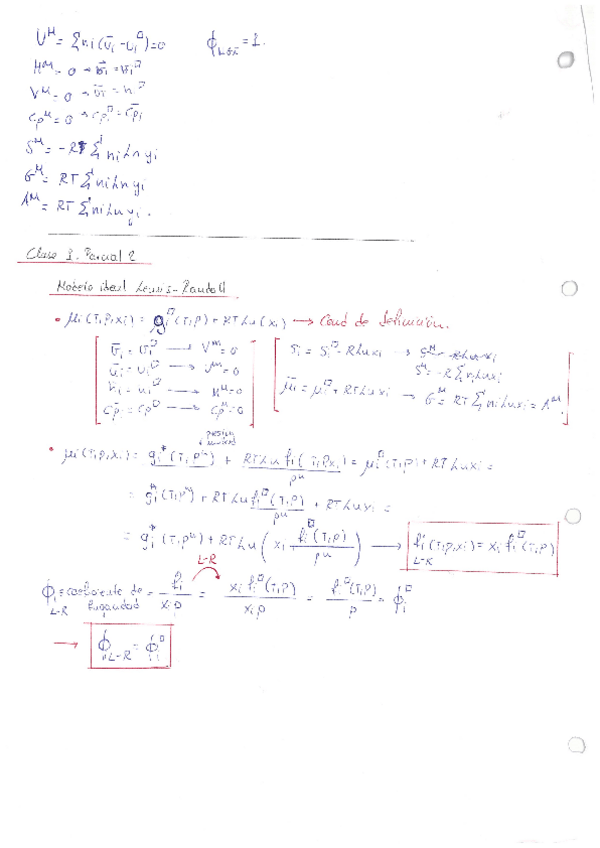 U^M = Σ ni (ūi - ui^□) = 0
H^M = 0 →
V^M = 0 →
Cp^M = 0 → Cpi^□ = C̄pi
S^M = -R Σ ni Ln yi
G^M = RT Σ ni Ln yi
A^M = RT Σ ni Ln yi.
Clase 1. Parcial 2
Modelo ideal Lewis-Randall
• μi (T,P,xi) = gi^□ (T,P) + RT Ln (xi) → Cond de definición.
v̄i = vi^□ → V^M = 0
ūi = ui^□ → U^M = 0
h̄i = hi^□ → H^M = 0
C̄pi = Cp^□ → Cp^M = 0
S̄i = Si^□ - R Ln xi →
S^M = -R Σ ni Ln xi
μ̄i = μi^□ + RT Ln xi → G^M = RT Σ ni Ln xi = A^M
presión
• μi (T,P,xi) = gi^* (T,P^u) + RT Ln f̂i (T,P,xi) / P^u = μi^□ (T,P) + RT Ln xi =
= gi^* (T,P^u) + RT Ln fi^□ (T,P) / P^u + RT Ln xi =
= gi^* (T,P^u) + RT Ln ( xi fi^□ (T,P) / P^u ) → f̂i (T,P,xi) = xi fi^□ (T,P)
L-R
L-R
φ̂i = coeficiente de fugacidad = f̂i / xi P = xi fi^□ (T,P) / xi P = fi^□ (T,P) / P = φi^□
L-R
→ φ̂i L-R = φi^□